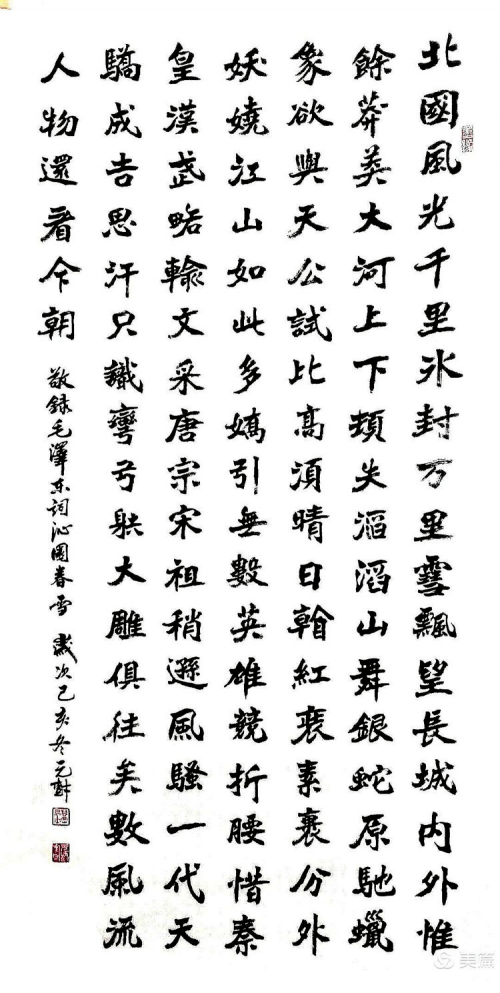 北國風光千里冰封万里雪飄望長城内外惟
餘莽莽大河上下頓失滔滔山舞銀蛇原馳蠟
象欲與天公試比高須晴日紅裹素裹分外
妖嬈江山如此多嬌引無數英雄競折腰惜秦
皇漢武略輸文采唐宗宋祖稍遜風騷一代天
驕成吉思汗只識彎弓射大雕俱往矣數風流
人物還看今朝
敬錄毛澤东詞沁園春雪 歲次己亥冬元
美篇